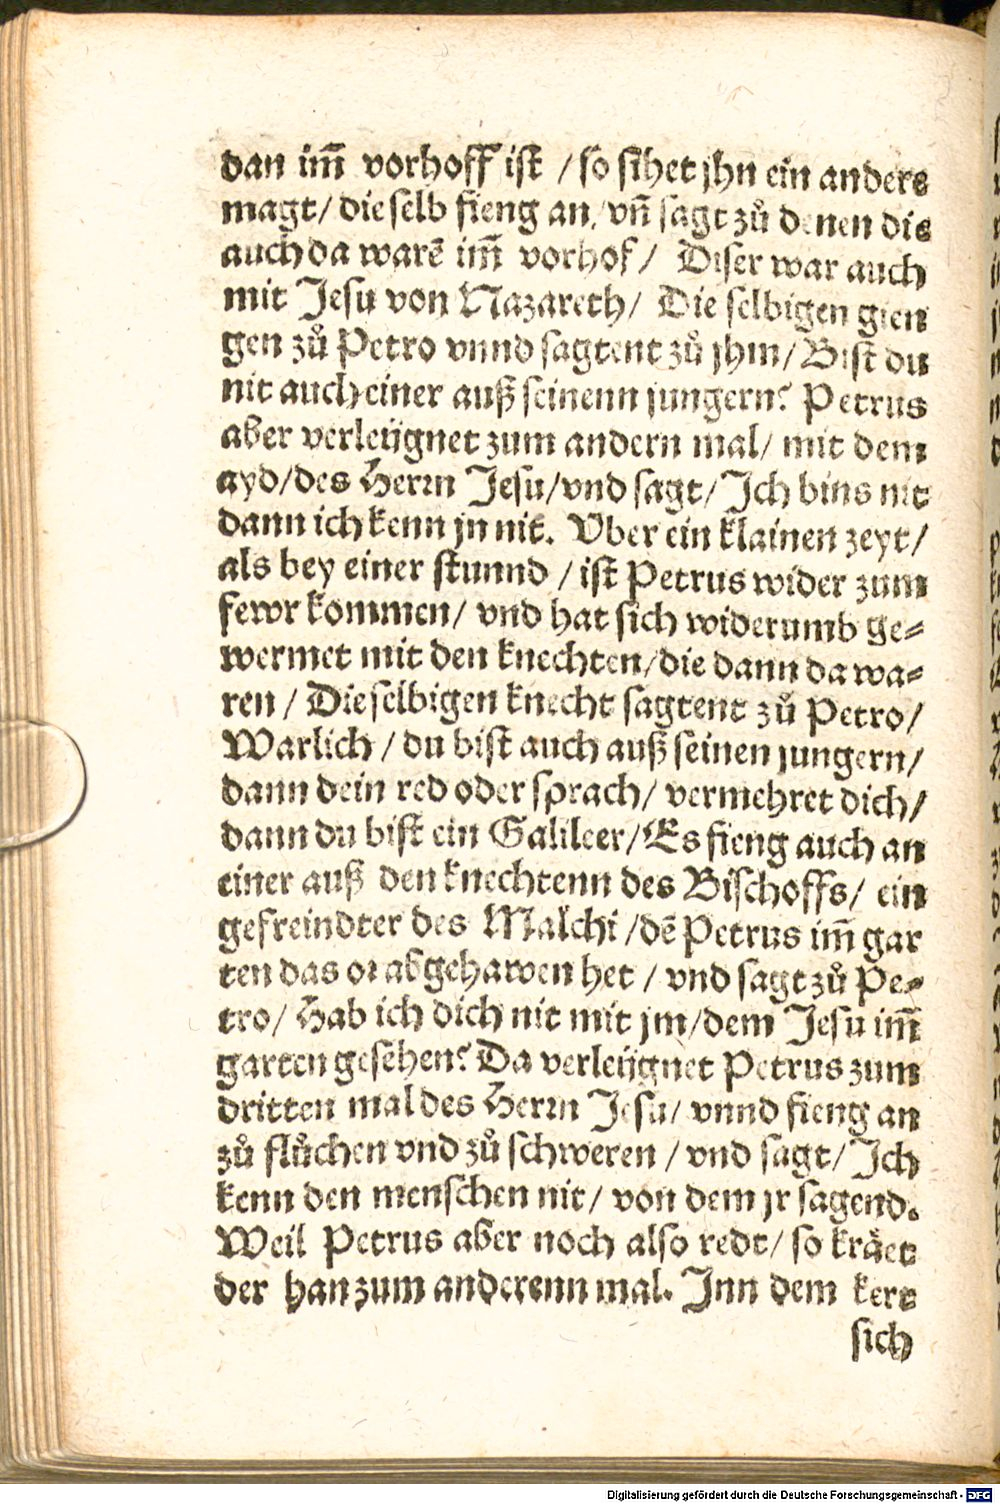 dan im̃ vorhoff ist / so sihet jhn ein anders
magt / die selb fieng an / vñ sagt zů denen die
auch da warẽ im̃ vorhof / Diser war auch
mit Jesu von Nazareth / Die selbigen gien
gen zů Petro vnnd sagtent zů jhm / Bist du
nit auch einer auß seinenn jungern? Petrus
aber verleügnet zum andern mal / mit dem
ayd / des Herrn Jesu / vnd sagt / Ich bins nit
dann ich kenn jn nit. Vber ein klainen zeyt /
als bey einer stunnd / ist Petrus wider zum
fewr kommen / vnd hat sich widerumb ge=
wermet mit den knechten / die dann da wa=
ren / Die selbigen knecht sagtent zů Petro /
Warlich / du bist auch auß seinen jungern /
dann dein red oder sprach / vermehret dich /
dann du bist ein Galileer / Es fieng auch an
einer auß den knechtenn des Bischoffs / ein
gefreindter des Malchi / dẽ Petrus im̃ gar
ten das or abgehawen het / vnd sagt zů Pe=
tro / Hab ich dich nit mit jm / dem Jesu im̃
garten gesehen? Da verleügnet Petrus zum
dritten mal des Herrn Jesu / vnnd fieng an
zů flůchen vnd zů schweren / vnd sagt / Ich
kenn den menschen nit / von dem jr sagend.
Weil Petrus aber noch also redt / so kräet
der han zum anderenn mal. Inn dem kert
sich
Digitalisierung gefördert durch die Deutsche Forschungsgemeinschaft - DFG